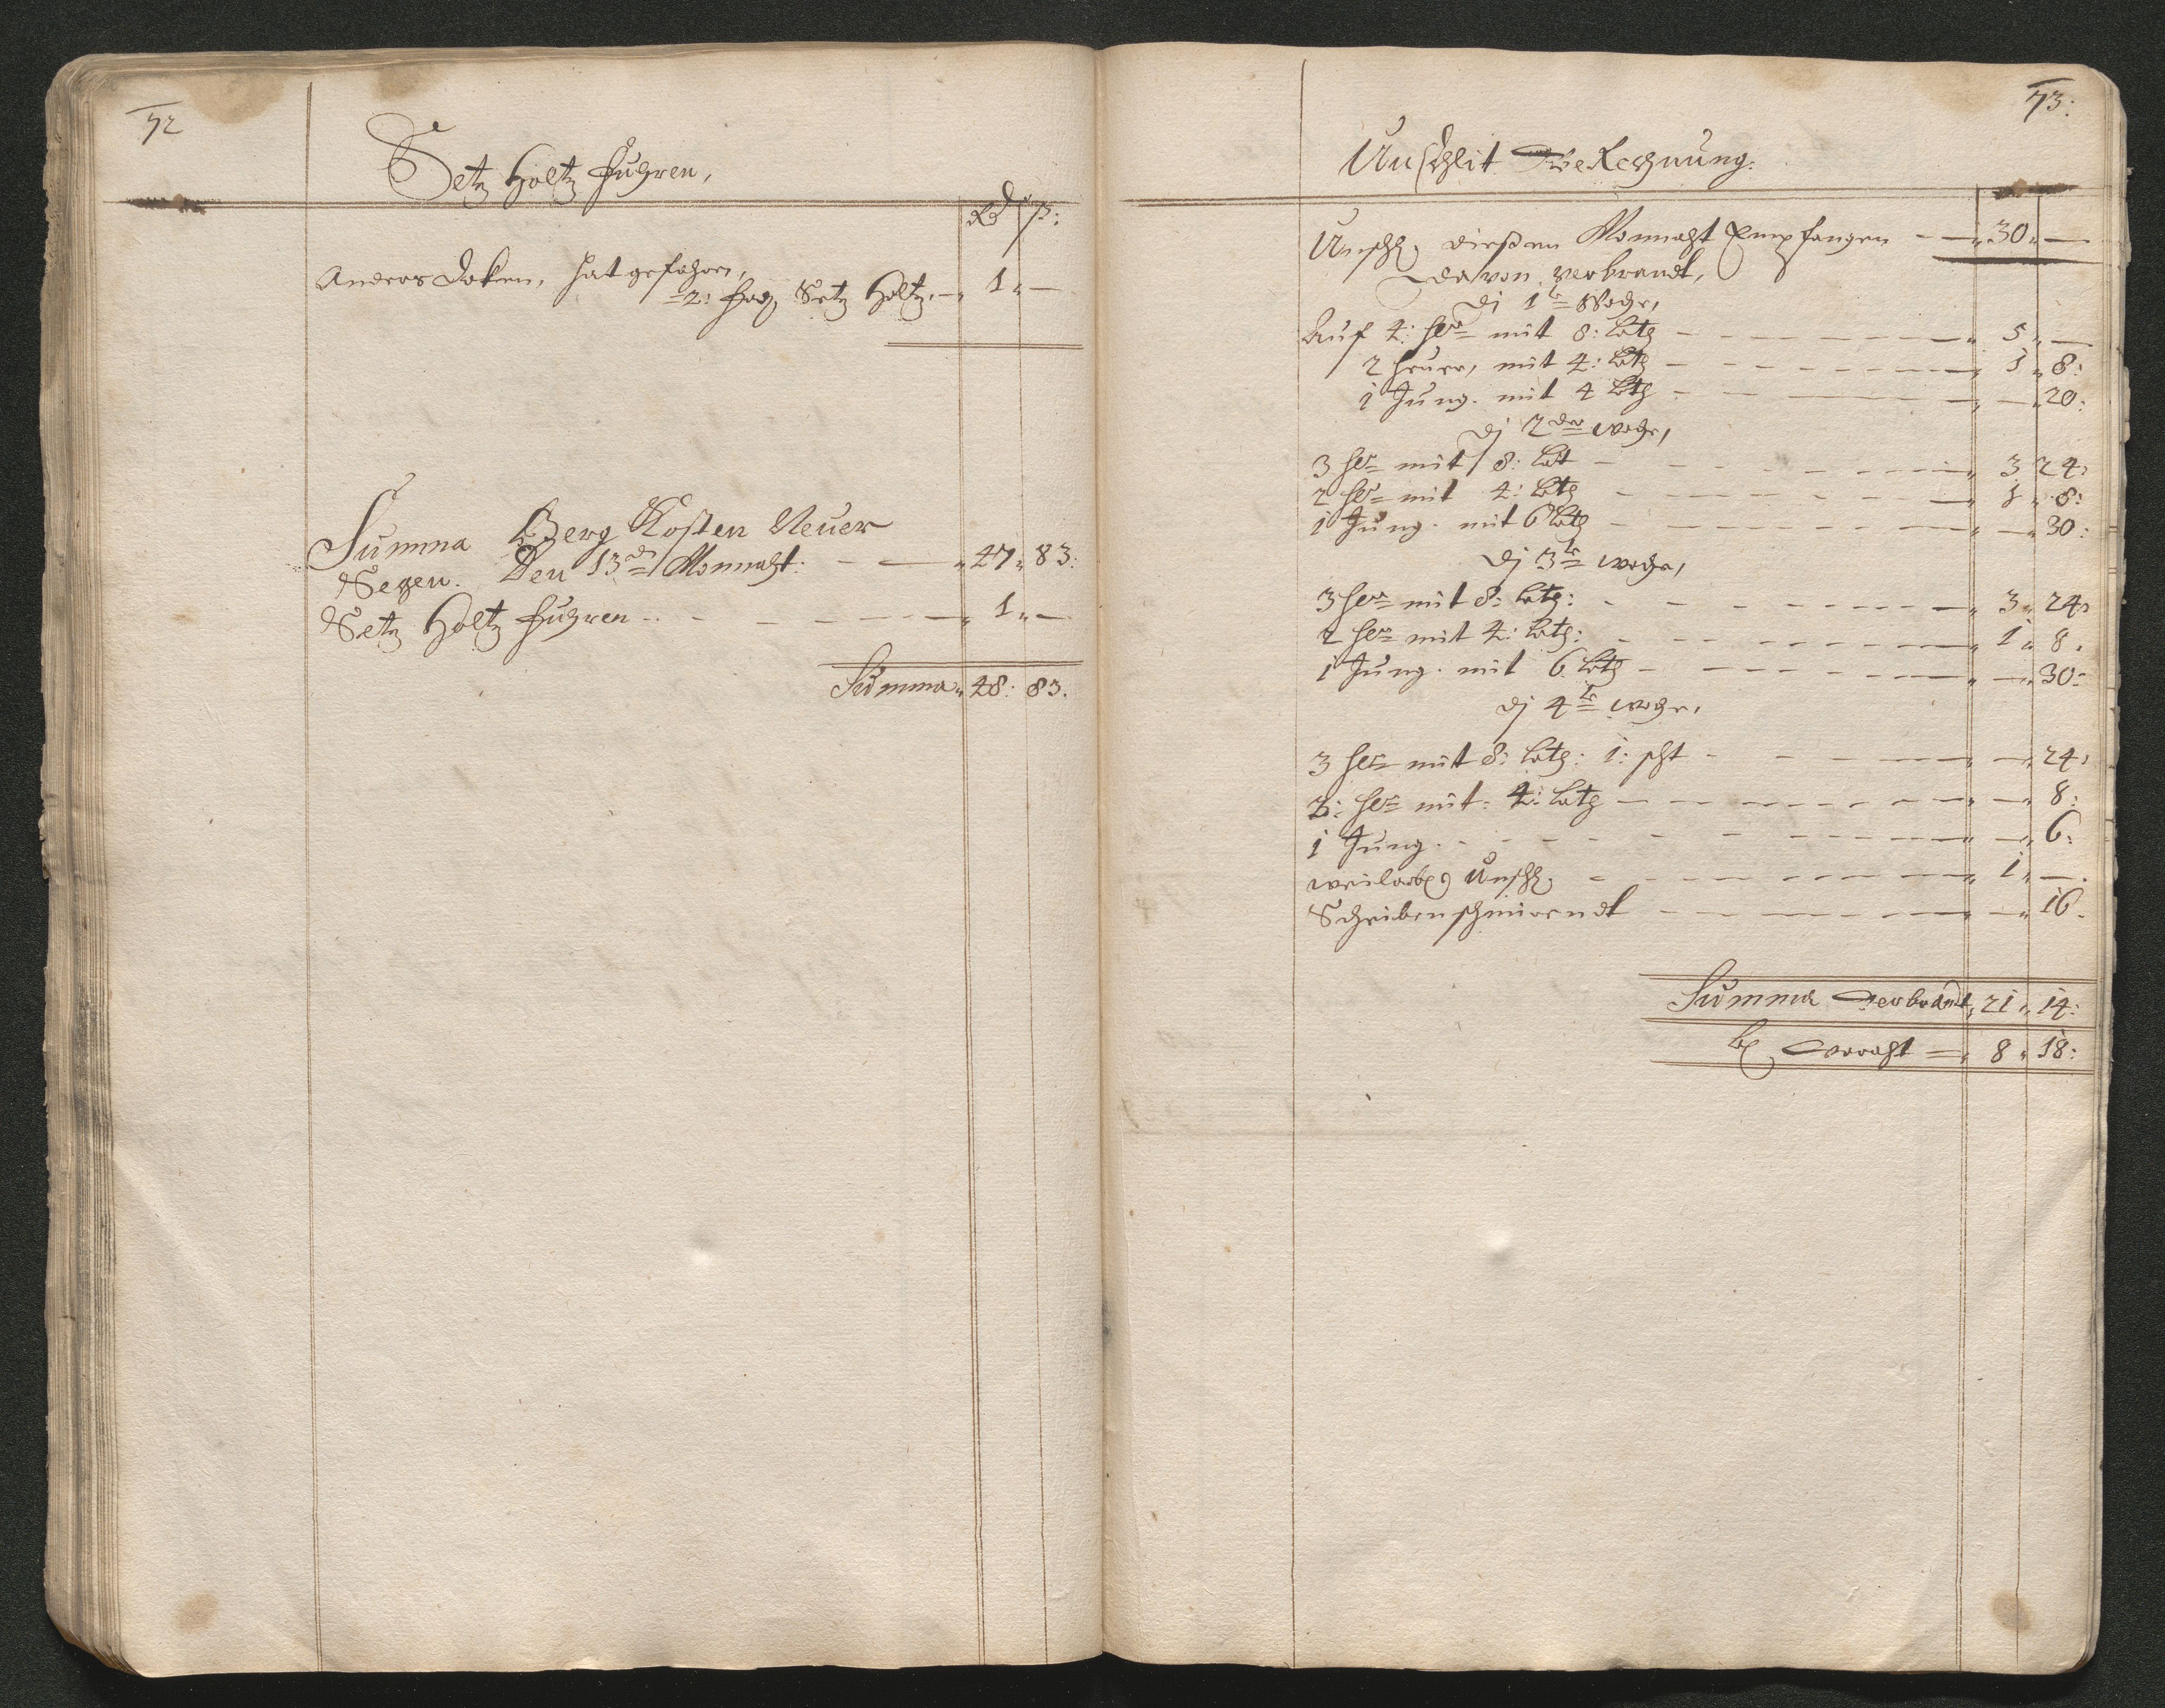 72
Setz Holtz Fuhren,
Rd ß:
Anders Doken, hat gefahren,
2: Setz Holtz, 1 „ —
Summa Berg Kosten Neuer
Segen. Den 13 Monnaht: „ 47 „ 83:
Setz Holtz Fuhren „ 1 „ —
Summa „ 48: 83.
73:
Unschlit BeRechnung.
Unschl, dießen Monnaht Empfangen „ 30 „ —
davon verbrandt,
Dj 1te Woche,
Auf 4: her mit 8: Loth „ 5 „ —
2 heuer, mit 4: Loth „ 1 „ 8:
1 Jung. mit 4 Loth „ — „ 20:
Dj 2der woche,
3 her mit 8: Lot „ 3 24:
2 her mit 4: Loth „ 1 „ 8:
1 Jung. mit 6 Loth „ — „ 30:
Dj 3te woche,
3 her mit 8: Loth: „ 3 „ 24:
2 her mit 4: Loth: „ 1 „ 8.
1 Jung. mit 6 Loth „ — „ 30:
Dj 4te woche,
3 her mit 8: Loth: 1: scht „ — „ 24:
2: her mit: 4: Loth „ — „ 8:
1 Jung. „ — „ 6:
weilarb Unschl, „ 1 „ —.
Scheibenschmirendt „ — „ 16.
Summa verbrandt „ 21 „ 14:
vorraht „ 8 „ 18: